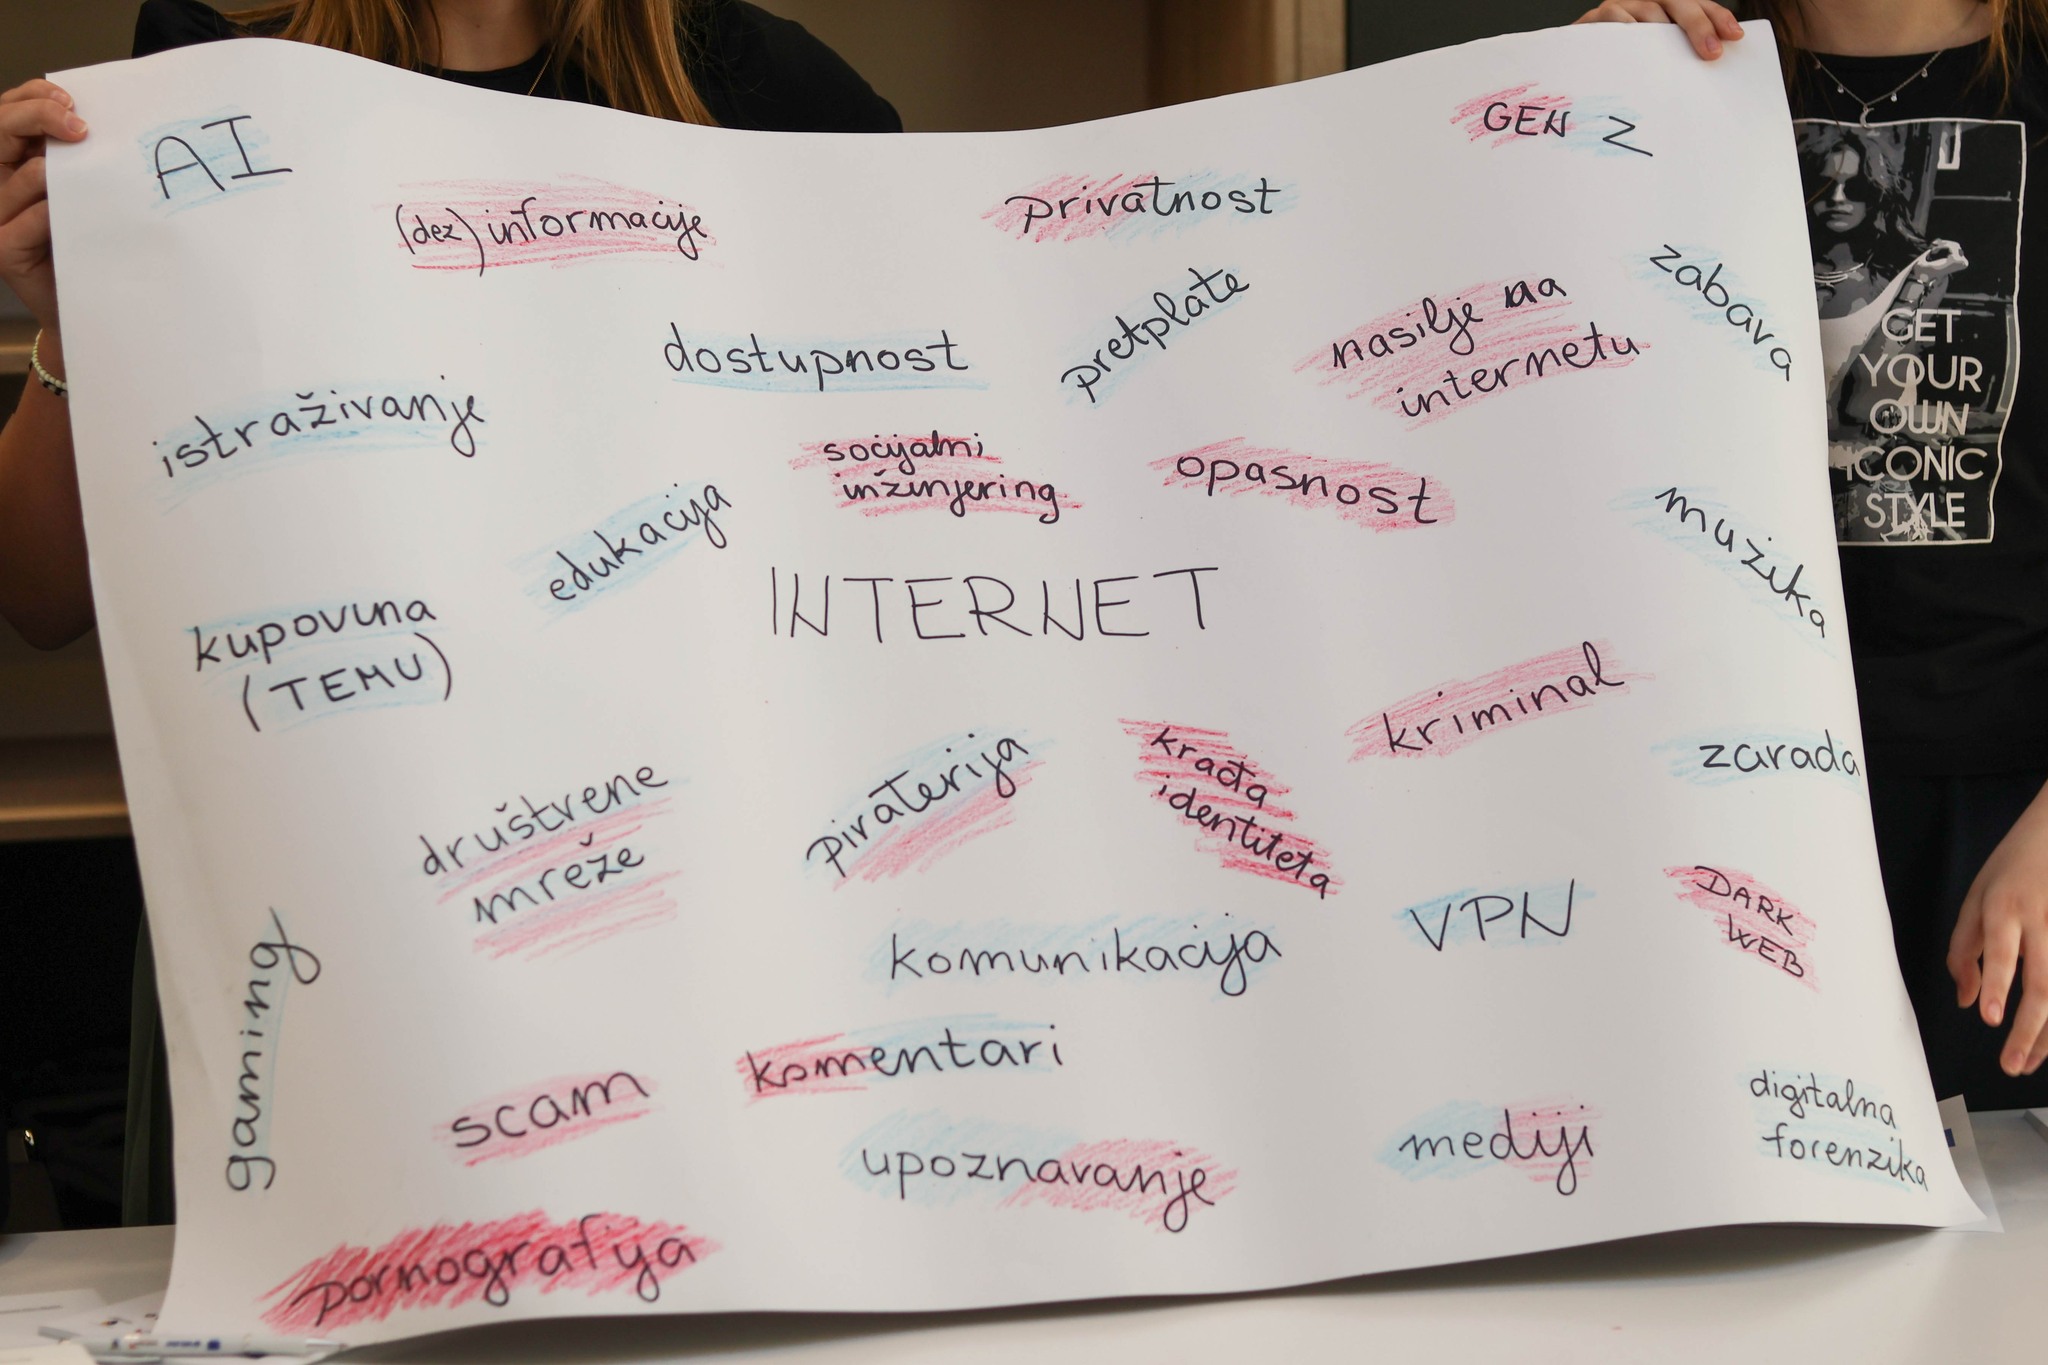 AI
GEN Z
(dez) informacije
privatnost
zabava
pretplate
nasilje na
internetu
dostupnost
istraživanje
socijalni
inžinjering
opasnost
edukacija
mužika
INTERNET
kupovina
(TEMU)
kriminal
zarada
društvene
mreže
piraterija
krađa
identiteta
VPN
DARK
WEB
komunikacija
gaming
komentari
scam
digitalna
forenzika
mediji
upoznavanje
pornografija
GET
YOUR
OWN
ICONIC
STYLE